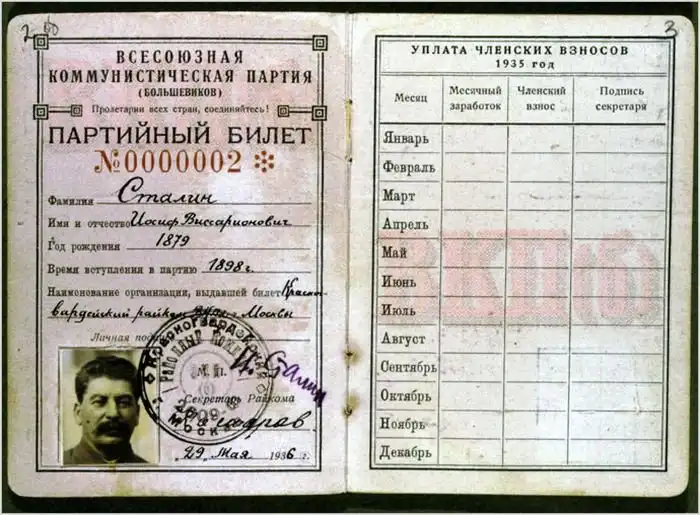 2
ВСЕСОЮЗНАЯ
КОММУНИСТИЧЕСКАЯ ПАРТИЯ
(БОЛЬШЕВИКОВ)
Пролетарии всех стран, соединяйтесь!
ПАРТИЙНЫЙ БИЛЕТ
№ 0000002
Фамилия Сталин
Имя и отчество Иосиф Виссарионович
Год рождения 1879
Время вступления в партию 1898 г.
Наименование организации, выдавшей билет Красно-
вардейский райком Москвы
Личная
И. Сталин
Красногвардейский
Районный
М. П.
МОСКВА
Секретарь Райкома
"29" Мая 1936 г.
3
УПЛАТА ЧЛЕНСКИХ ВЗНОСОВ
1935 год
Месяц Месячный заработок Членский взнос Подпись секретаря
Январь
Февраль
Март
Апрель
Май
Июнь
Июль
Август
Сентябрь
Октябрь
Ноябрь
Декабрь
ВКП(б)